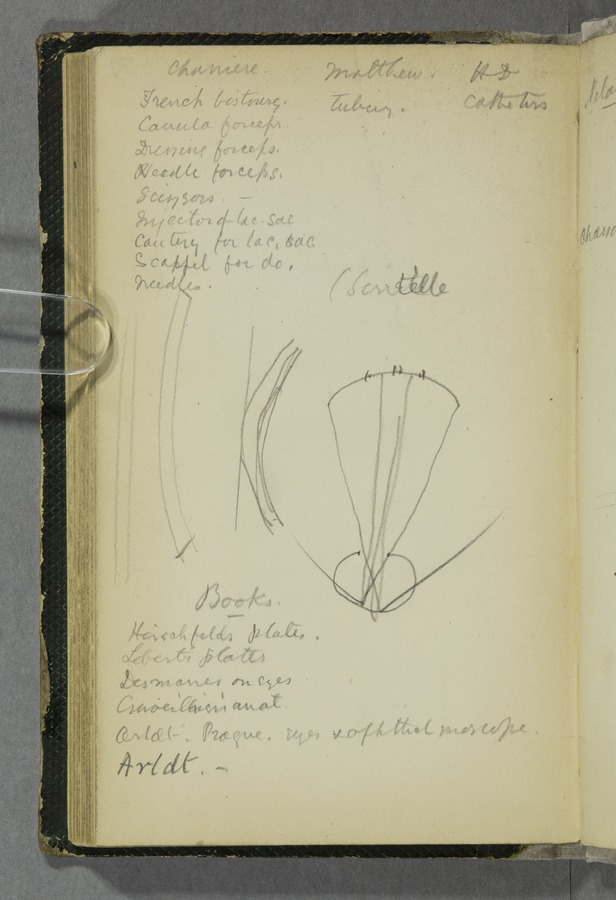 Charriere. Matthew. H D
French bistoury. tubing. Catheters
Canula forceps.
Dressing forceps.
Needle forceps.
Scissors. —
Injector of lac. sac
Cautery for lac. sac
Scappel for do.
Needles.
Books.
Hirschfelds plates.
Leberts plates
Desmarres on eyes
Cruveilhier's anat.
Arldt. Prague. eyes & ophthal moscope.
Arldt. —